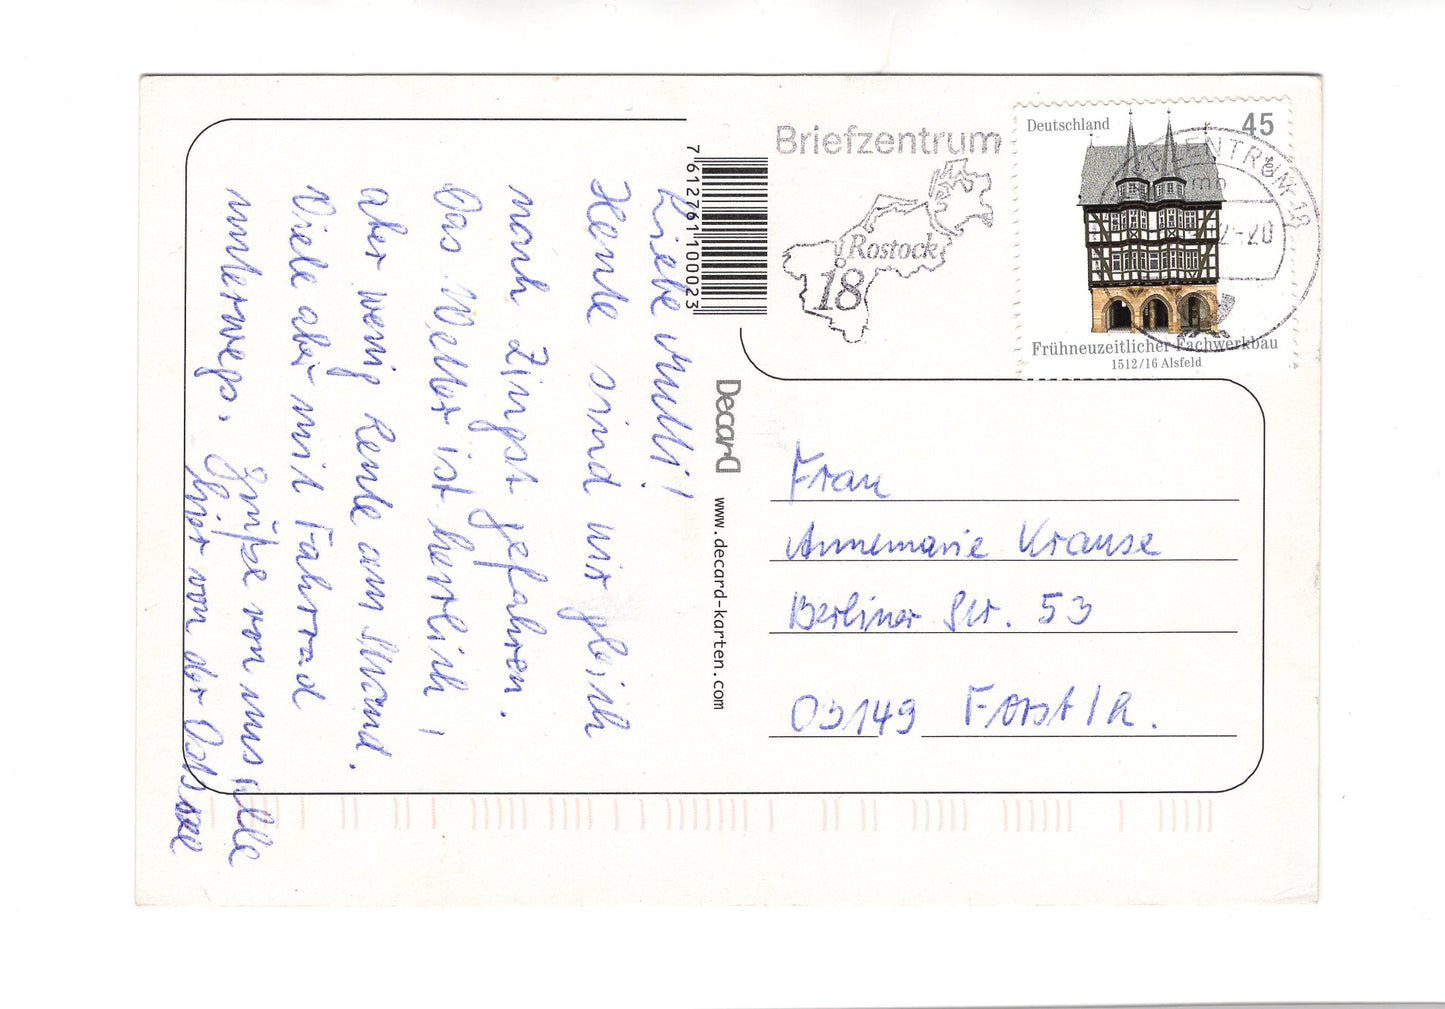 Liebe Mutti!
Heute sind wir gleich
nach Zingst gefahren.
Das Wetter ist herrlich,
aber wenig Leute am Strand.
Viele aber mit Fahrrad
unterwegs. Grüße von uns alle
hier von der Ostsee
7612761100023
Decard www.decard-karten.com
Briefzentrum
Rostock
18
Deutschland 45
Frühneuzeitlicher Fachwerkbau
1512/16 Alsfeld
BRIEFZENTRUM 18
mb
2-20
Frau
Annemarie Krause
Berliner Str. 53
03149 Forst/L.